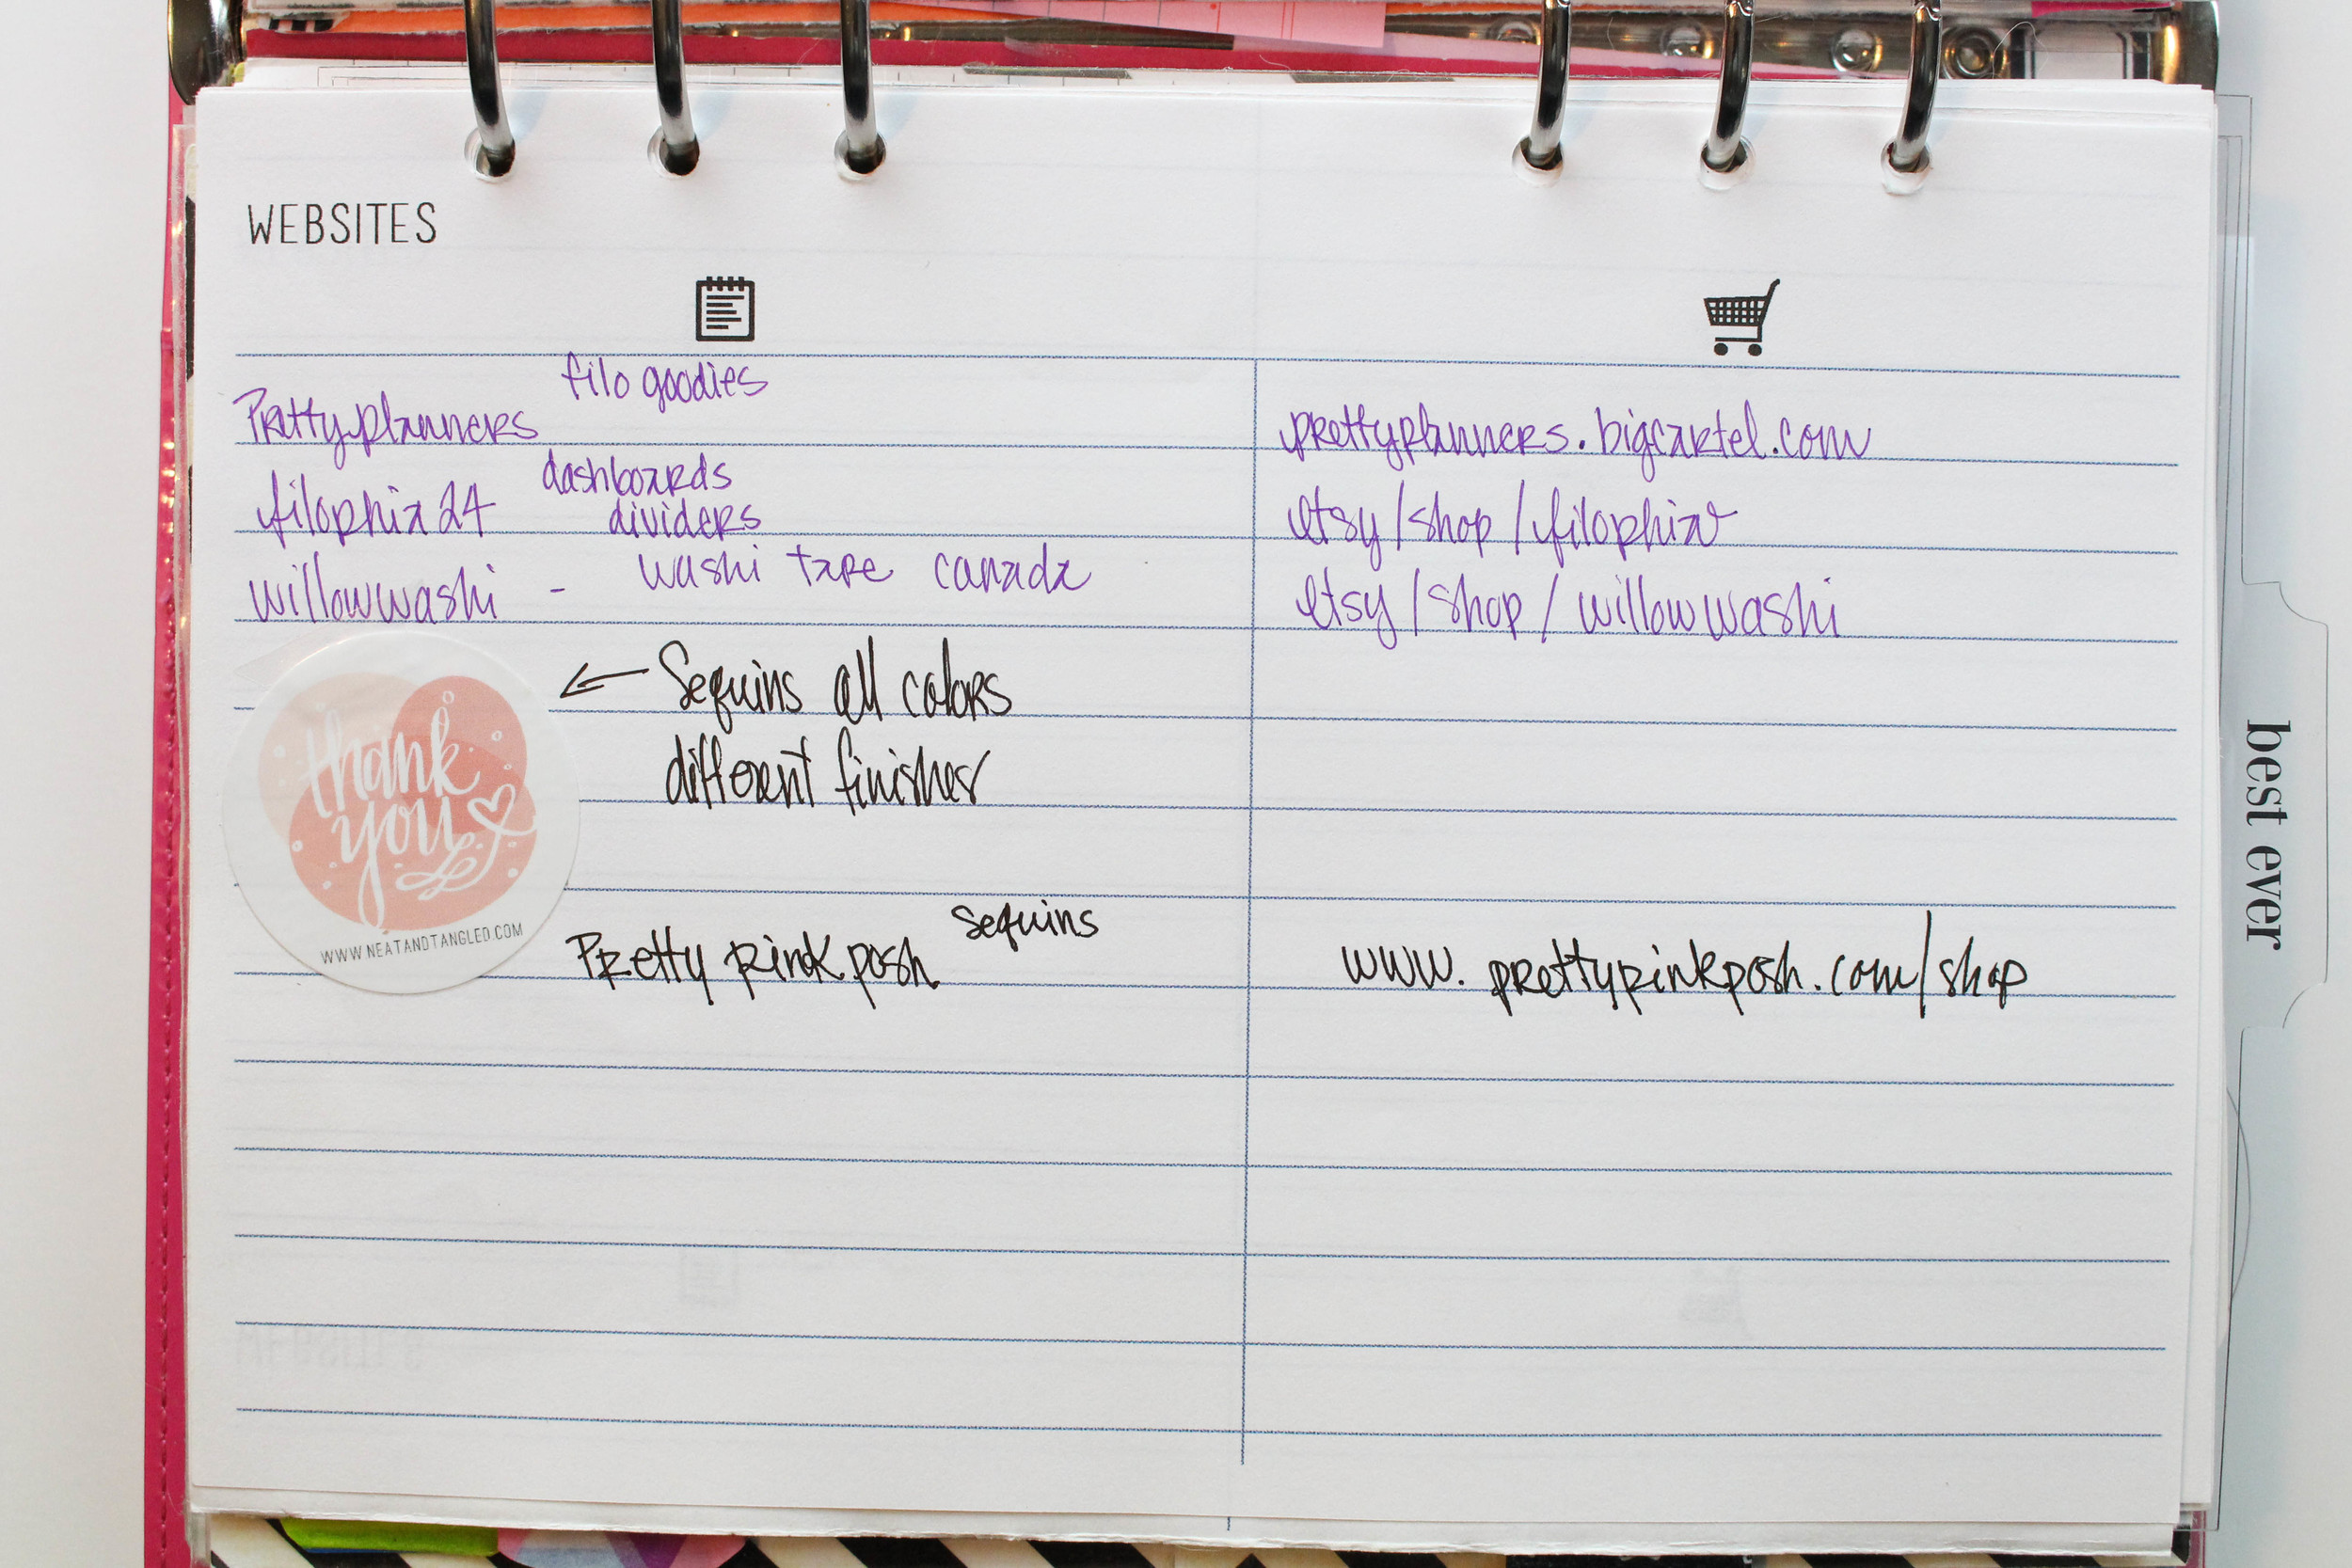 WEBSITES
filo goodies
Prettyplanners
prettyplanners.bigcartel.com
dashboards
filophia24
dividers
etsy/shop/filophia
willowwashi - washi tape canada
etsy/shop/willowwashi
Sequins all colors
different finishes
thank
you
WWW.NEATANDTANGLED.COM
Pretty pink posh sequins
www.prettypinkposh.com/shop
best ever